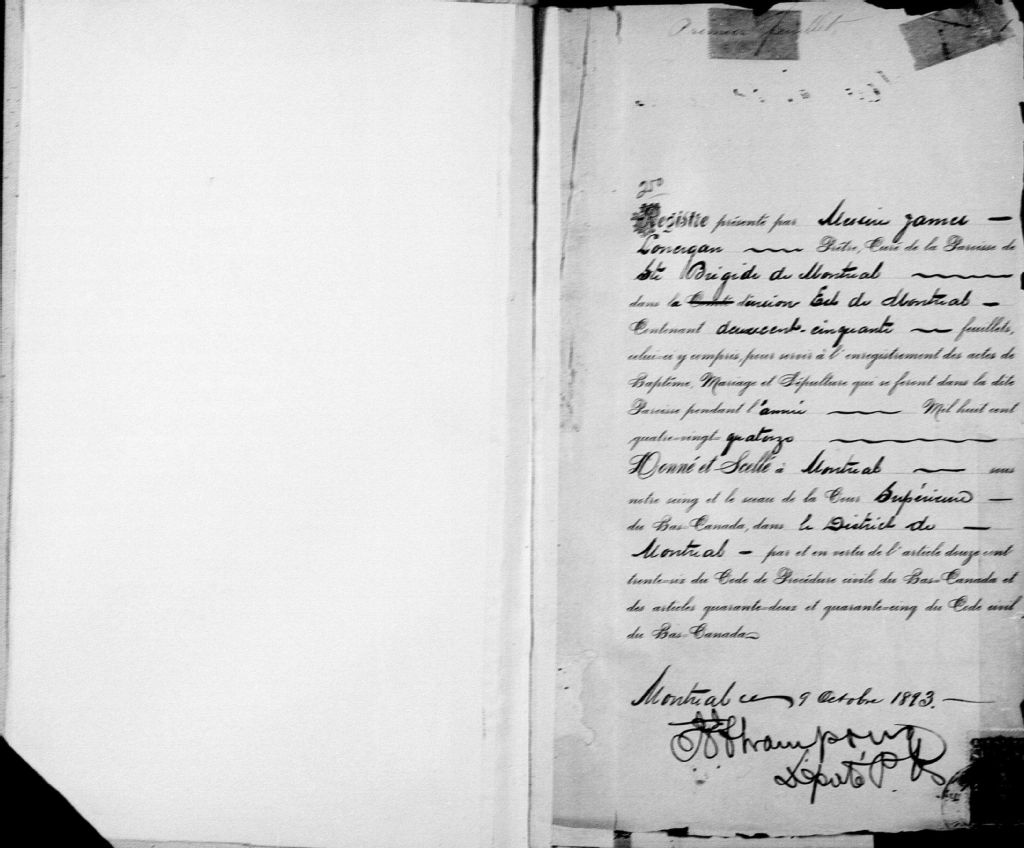 Premier feuillet,
250
Registre présenté par Messire James —
Lonergan — Prêtre, Curé de la Paroisse de
Ste Brigide de Montreal —
dans la Comté division Est de Montreal —
Contenant deux cent-cinquante — feuillets,
celui-ci y compris, pour servir à l'enregistrement des actes de
Baptême, Mariage et Sépulture qui se feront dans la dite
Paroisse pendant l'année — Mil huit cent
quatre-vingt quatorze —
Donné et Scellé à Montreal — sous
notre seing et le sceau de la Cour Supérieure —
du Bas-Canada, dans le District de —
Montreal — par et en vertu de l'article douze cent
trente-six du Code de Procédure civile du Bas-Canada et
des articles quarante-deux et quarante-cinq du Code civil
du Bas-Canada
Montreal ce 9 Octobre 1893. —
Député P.